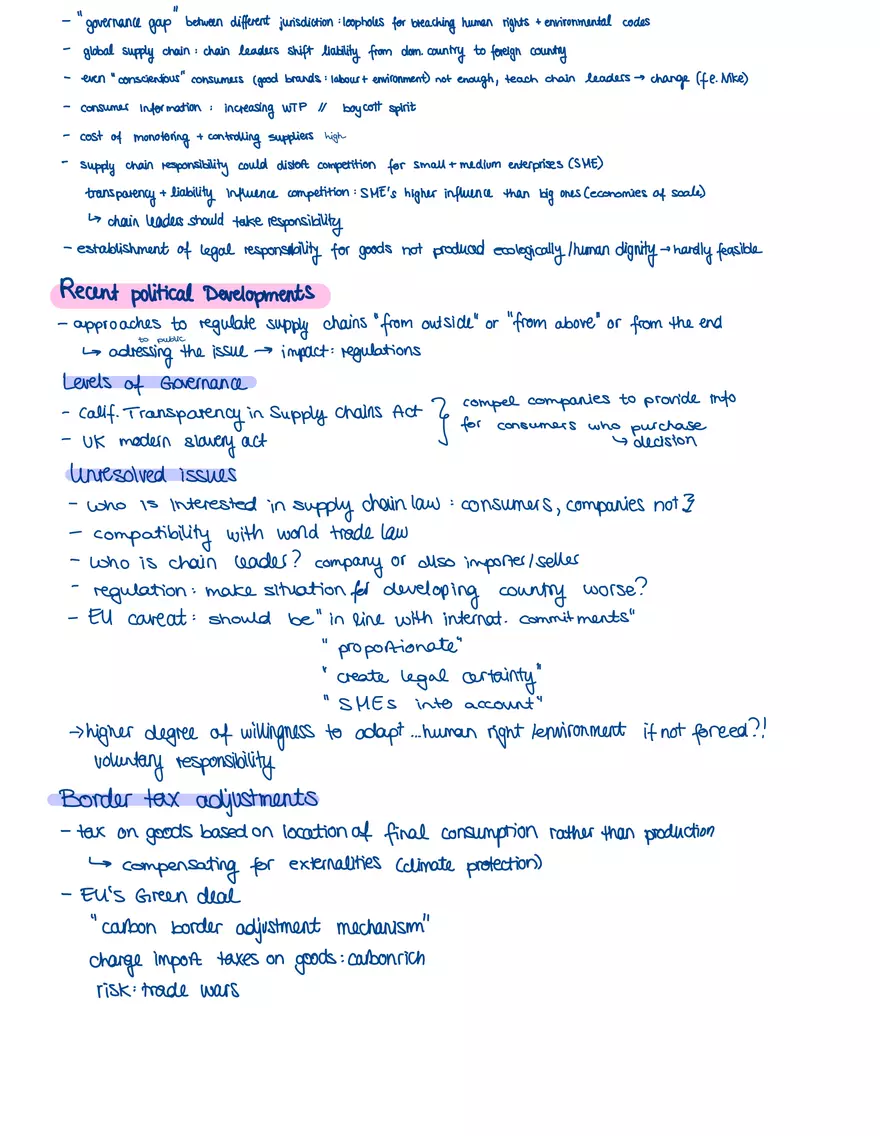 - "governance gap" between different jurisdiction : loopholes for breaching human rights + environmental codes
- global supply chain : chain leaders shift liability from dom. country to foreign country
- even "conscientious" consumers (good brands : labour + environment) not enough, teach chain leaders → change (f.e. Nike)
- consumer information : increasing WTP // boycott spirit
- cost of monotoring + controlling suppliers high
- supply chain responsibility could distort competition for small + medium enterprises (SME)
transparency + liability influence competition : SME's higher influence than big ones (economies of scale)
↳ chain leaders should take responsibility
- establishment of legal responsibility for goods not produced ecologically / human dignity → hardly feasible
Recent political Developments
- approaches to regulate supply chains "from outside" or "from above" or from the end
to public
↳ adressing the issue → impact : regulations
Levels of Governance
- Calif. Transparency in Supply Chains Act } compel companies to provide info
- UK modern slavery act for consumers who purchase
↳ decision
Unresolved issues
- who is interested in supply chain law : consumers, companies not }
- compatibility with world trade law
- who is chain leader? company or also importer/seller
- regulation : make situation for developing country worse?
- EU caveat : should be "in line with internat. commitments"
"proportionate"
"create legal certainty"
"SMEs into account"
→ higher degree of willingness to adapt ... human right /environment if not forced?!
voluntary responsibility
Border tax adjustments
- tax on goods based on location of final consumption rather than production
↳ compensating for externalities (climate protection)
- EU's Green deal
"carbon border adjustment mechanism"
charge import taxes on goods : carbonrich
risk : trade wars